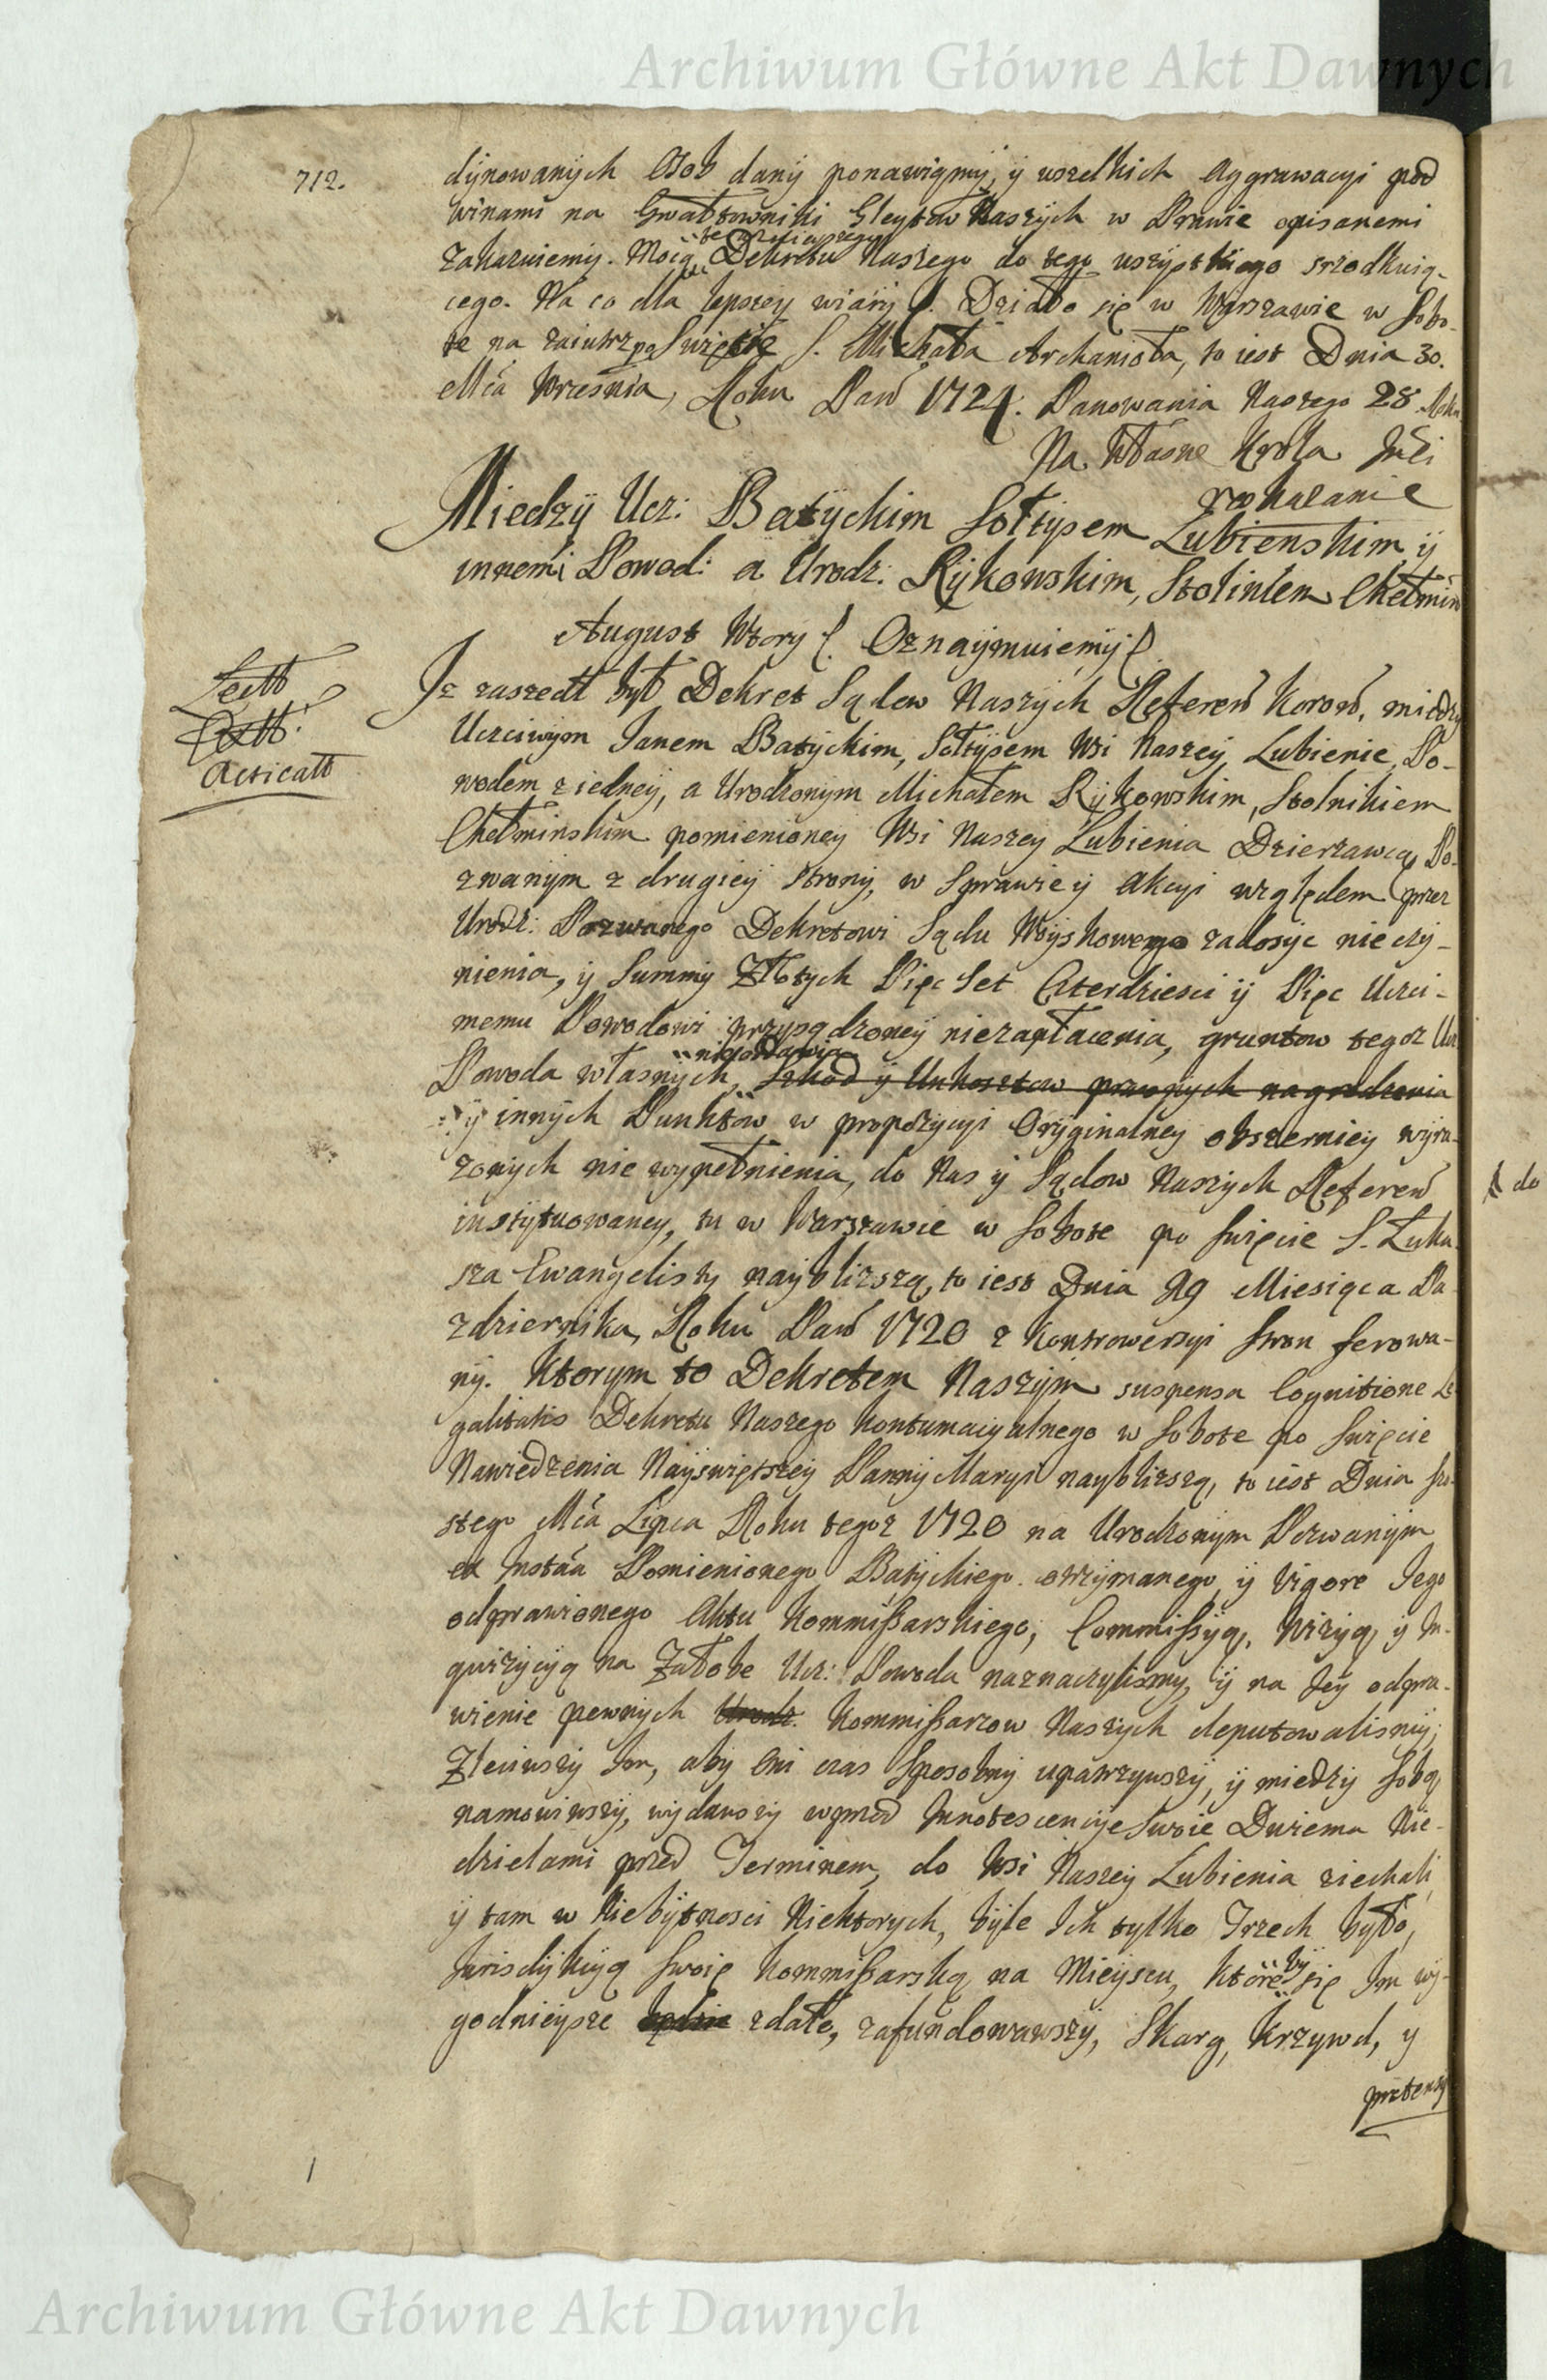 Archiwum Główne Akt Dawnych
712.
dynowanych Osob dany ponawiamy, y wszelkich Aggrawacyi pod
winami na Gwałtowniki Gleytow Naszych w Prawie opisanemi
zakazuiemy. Mocą teraznieyszego Dekretu Naszego do tego wszystkiego srzodkuią-
cego. Na co dla lepszey wiary. Działo się w Warszawie w Sobo-
te na zaiutrz po Swięcie S. Michała Archanioła, to iest Dnia 30.
Mca Wrzesnia, Roku Pan 1724. Panowania Naszego 28. Roku
Na Własne Krola Jmci
rozkazanie
Miedzy Ucz: Batyckim Sołtysem Lubienskim, y
innemi Powod: a Urodz: Rykowskim, Stolnikem Chełmin
August Wtory Oznaymuiemy
Lect
Acticatt
Iz zaszedł był Dekret Sądow Naszych Referen Koron, miedzy
Uczciwym Janem Batyckim, Sołtysem Wsi Naszey Lubienie, Po-
wodem z iedney, a Urodzonym Michałem Rykowskim, Stolnikiem
Chełminskim pomienioney Wsi Naszey Lubienia Dzierzawcą, Po-
zwanym z drugiey strony, w Sprawie y Akcyi względem przez
Urodz: Pozwanego Dekretowi Sądu Woyskowego zadosyc nie czy-
nienia, y Summy Złotych Pięc Set Czterdziesci y Pięc Uczci-
wemu Powodowi przysądzoney niezapłacenia, gruntow tegoz Ucz
Powoda własnych, nieoddania Szkod y Unkosztow prawnych nagrodzenia
y innych Punktow w propozycyi Oryginalney obszerniey wyra-
zonych nie wypełnienia, do Nas y Sądow Naszych Referen
instytuowaney, tu w Warszawie w Sobote po Swięcie S. Łuka-
sza Ewangelisty nayblizszą, to iest Dnia 19 Miesiąca Pa-
zdziernika, Roku Pan 1720 z Kontrowersyi Stron ferowa-
ny. Ktorym to Dekretem Naszym suspensa Cognitione Le-
galitatis Dekretu Naszego Kontumacyalnego w Sobote po Swięcie
Nawiedzenia Nayswiętszey Panny Maryi nayblizszą, to iest Dnia Szo-
stego Mca Lipca Roku tegoz 1720 na Urodzonym Pozwanym
ex Insta Pomienionego Batyckiego otrzymanego, y vigore Jego
odprawionego Aktu Kommissarskiego, Commissyą, Wizyą, y In-
quizycyą na Załobe Ucz: Powoda naznaczylismy, y na Jey odpra-
wienie pewnych Urodz: Kommissarzow Naszych deputowalismy;
Zleciwszy Im, aby Oni czas Sposobny upatrzywszy, y miedzy Sobą
namowiwszy, wydawszy wprzod Innotescencye Swoie Dwiema Nie-
dzielami przed Terminem, do Wsi Naszey Lubienia ziechali,
y tam w Niebytnosci Niektorych, byle Ich tylko Trzech było,
Jurisdykcyą Swoię Kommissarską na Mieyscu, ktore by się Im wy-
godnieysze będzie zdało, zafundowawszy, Skarg, Krzywd, y
pretensy
do
Archiwum Główne Akt Dawnych